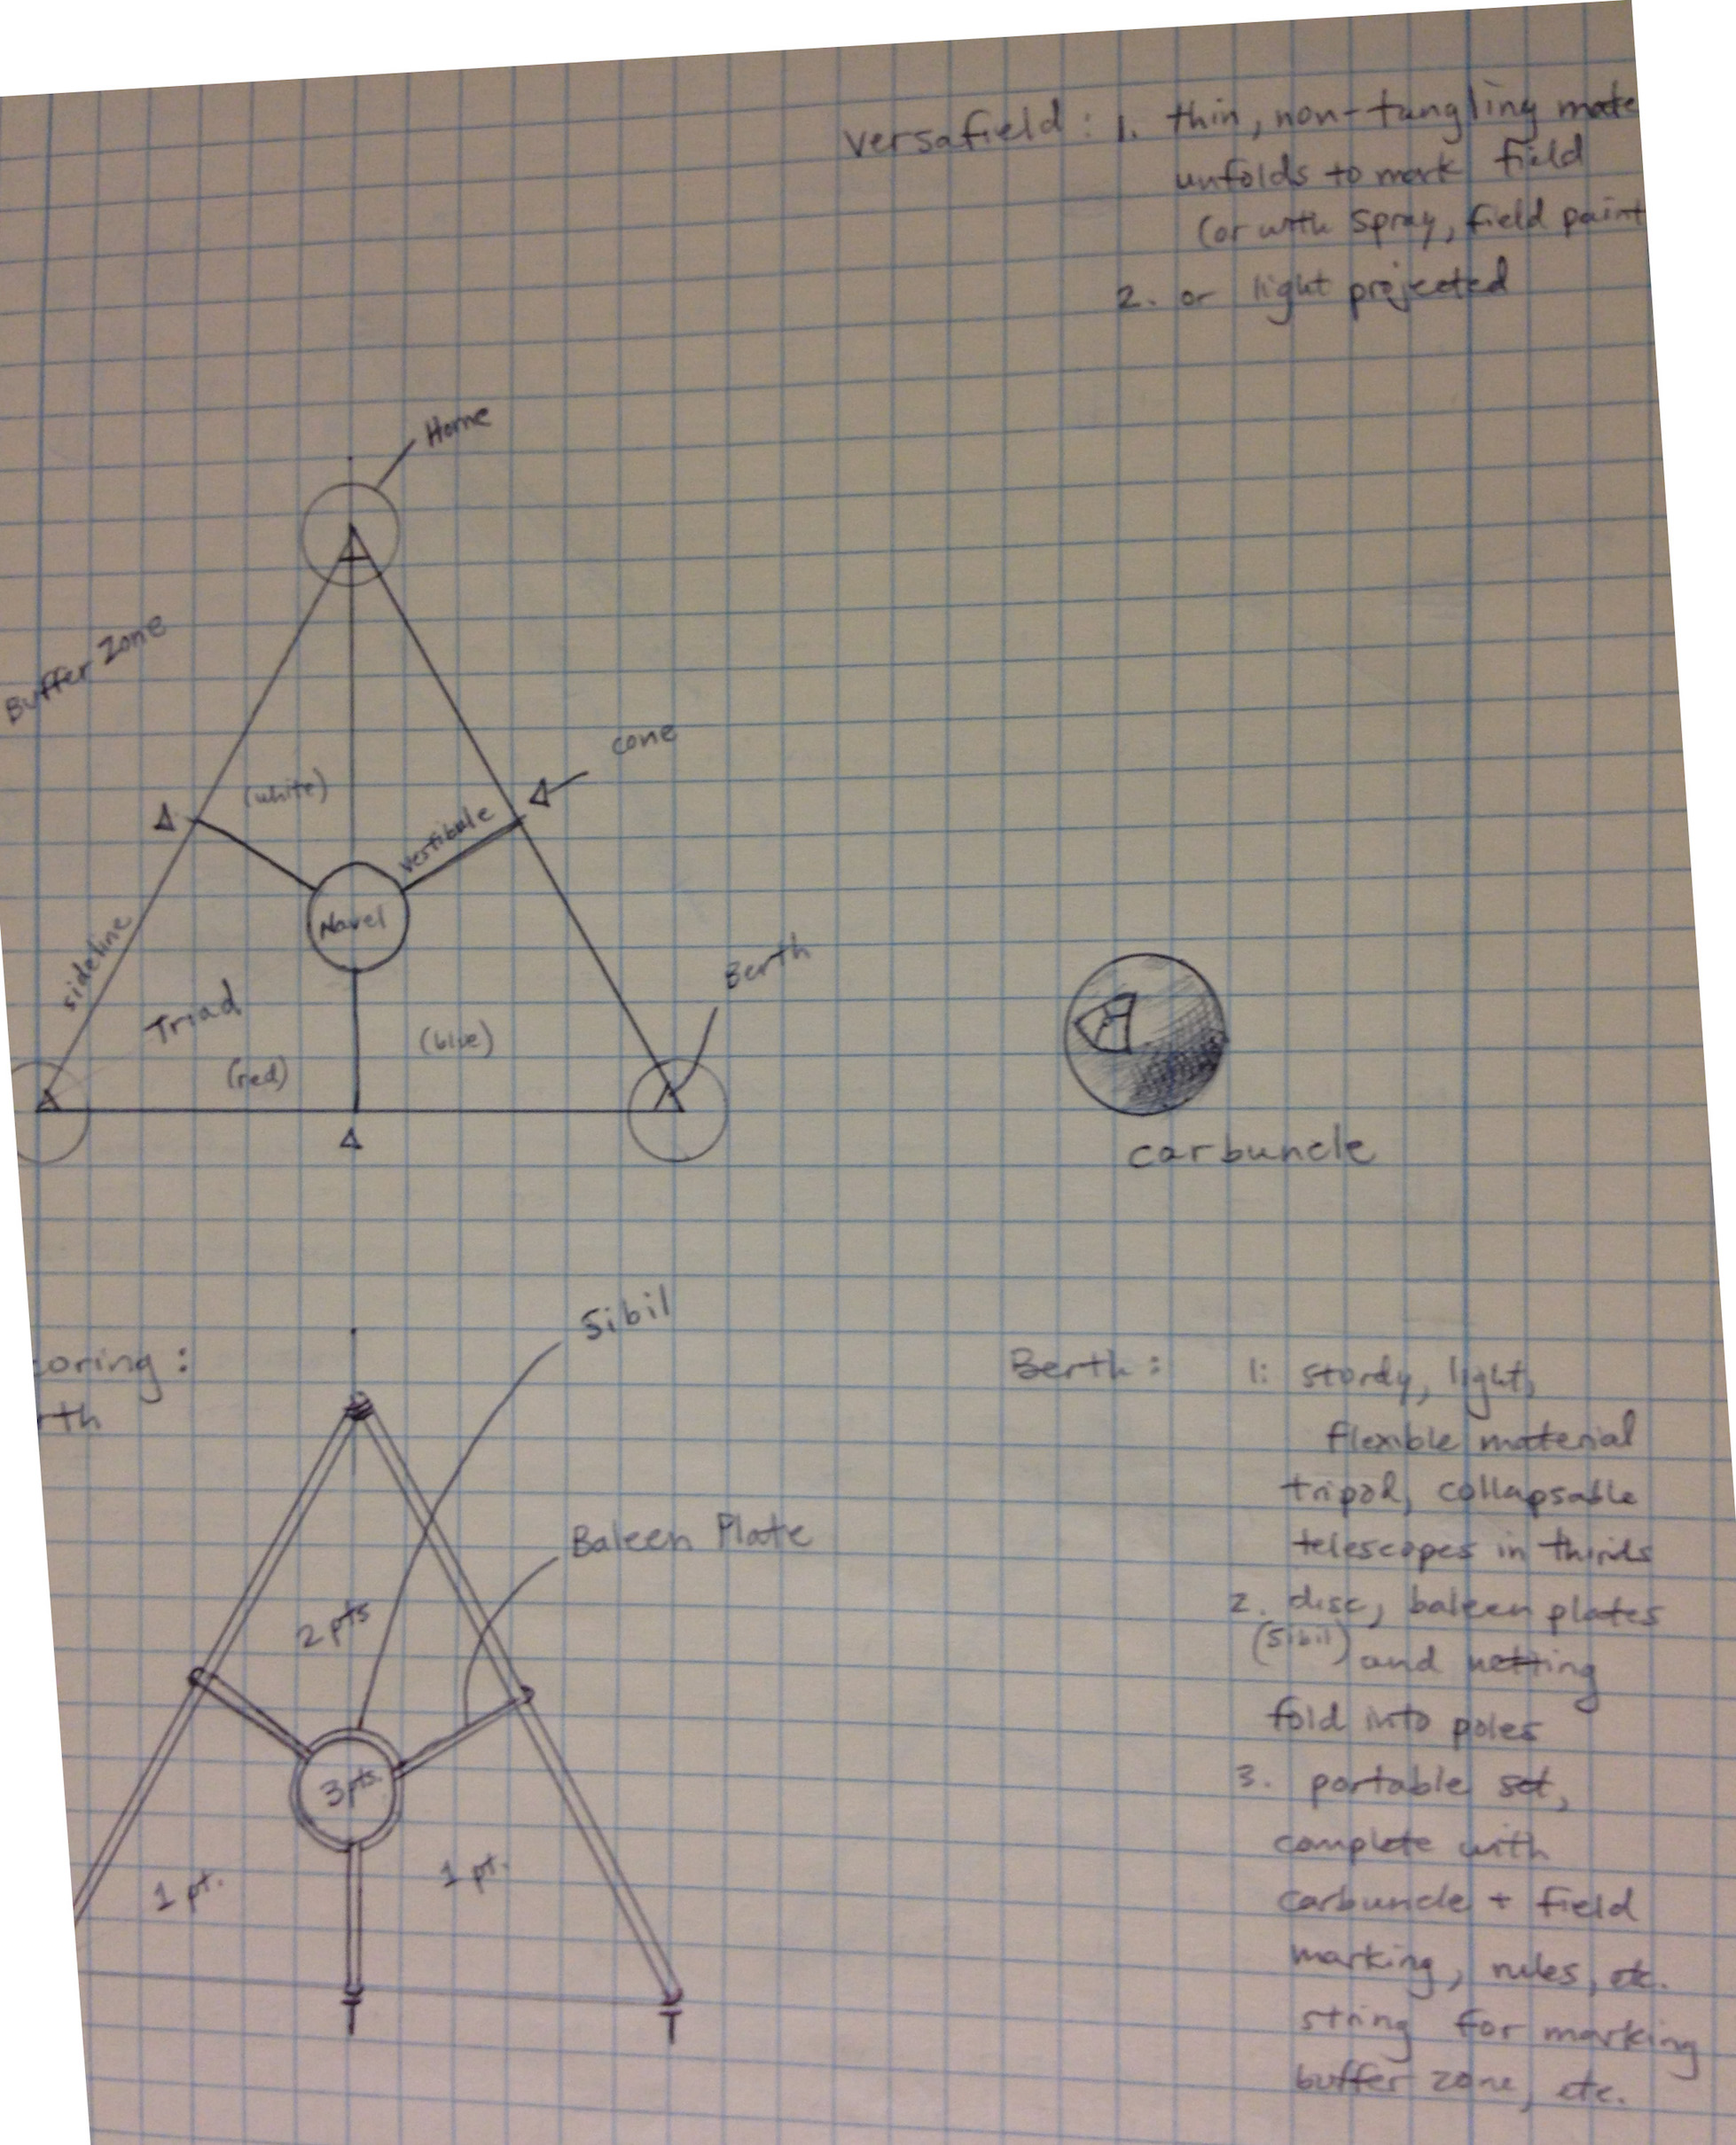 versafield: 1. thin, non-tangling mate
unfolds to mark field
(or with spray, field paint
2. or light projected
Home
Buffer Zone
cone
(white)
Vestibule
Navel
sideline
Berth
Triad
(blue)
(red)
carbuncle
Sibil
coring:
rth
Baleen Plate
2 pts
3 pts.
1 pt.
1 pt.
Berth: 1: sturdy, light,
flexible material
tripod, collapsable
telescopes in thirds
2. disc, baleen plates
(Sibil) and netting
fold into poles
3. portable set,
complete with
carbuncle + field
marking, rules, etc.
string for marking
buffer zone, etc.